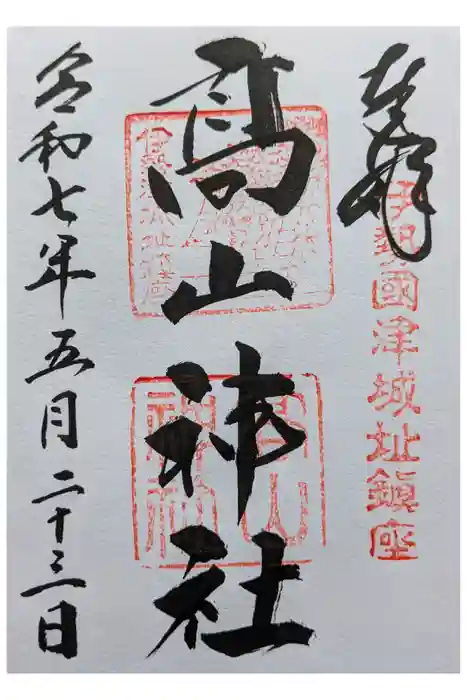 奉拝
伊勢國津城址鎮座
髙山神社
高山神社
令和七年五月二十三日